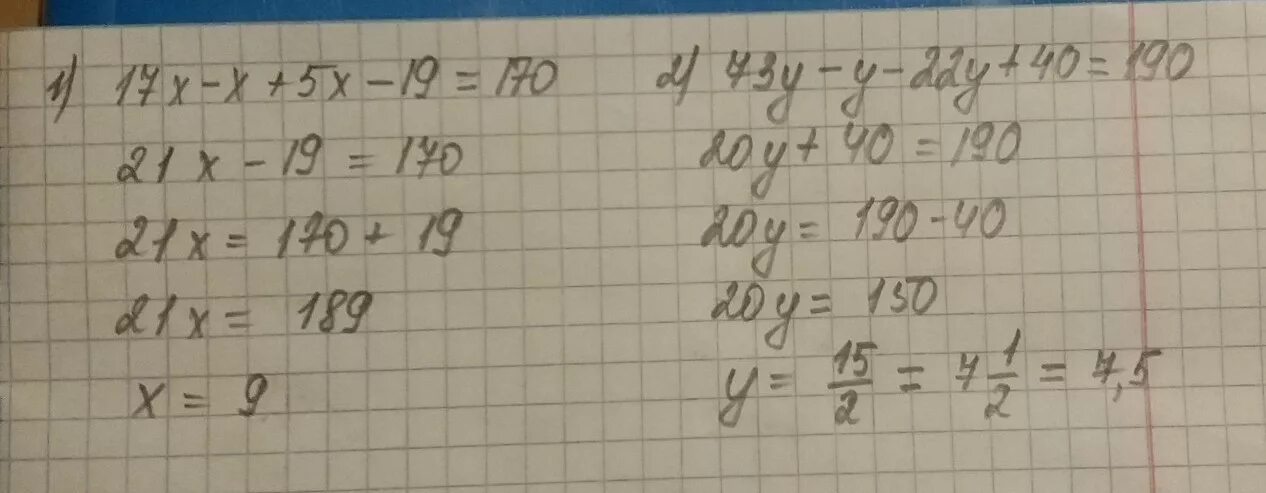 1) 17x - x + 5x - 19 = 170
21x - 19 = 170
21x = 170 + 19
21x = 189
x = 9
2) 73y - y - 22y + 40 = 190
20y + 40 = 190
20y = 190 - 40
20y = 150
y = 15/2 = 7 1/2 = 7,5